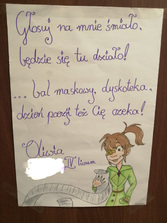 Głosuj na mnie śmiało.
będzie się tu działo!
... bal maskowy, dyskoteka.
dzień poezji też Cię czeka!
Oliwia
IV